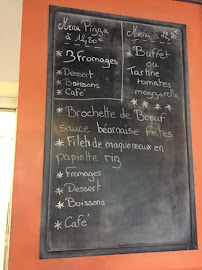 Menu Pizza
à 12,80€
* 3 Fromages
* Dessert
* Boissons
* Café
Menu à 12,80€
* Buffet
ou
Tartine
tomates
mozzarella
* Brochette de Boeuf
sauce béarnaise Frites
* Filets de maquereaux en
papillote riz
* Fromages
* Dessert
* Boissons
* Café